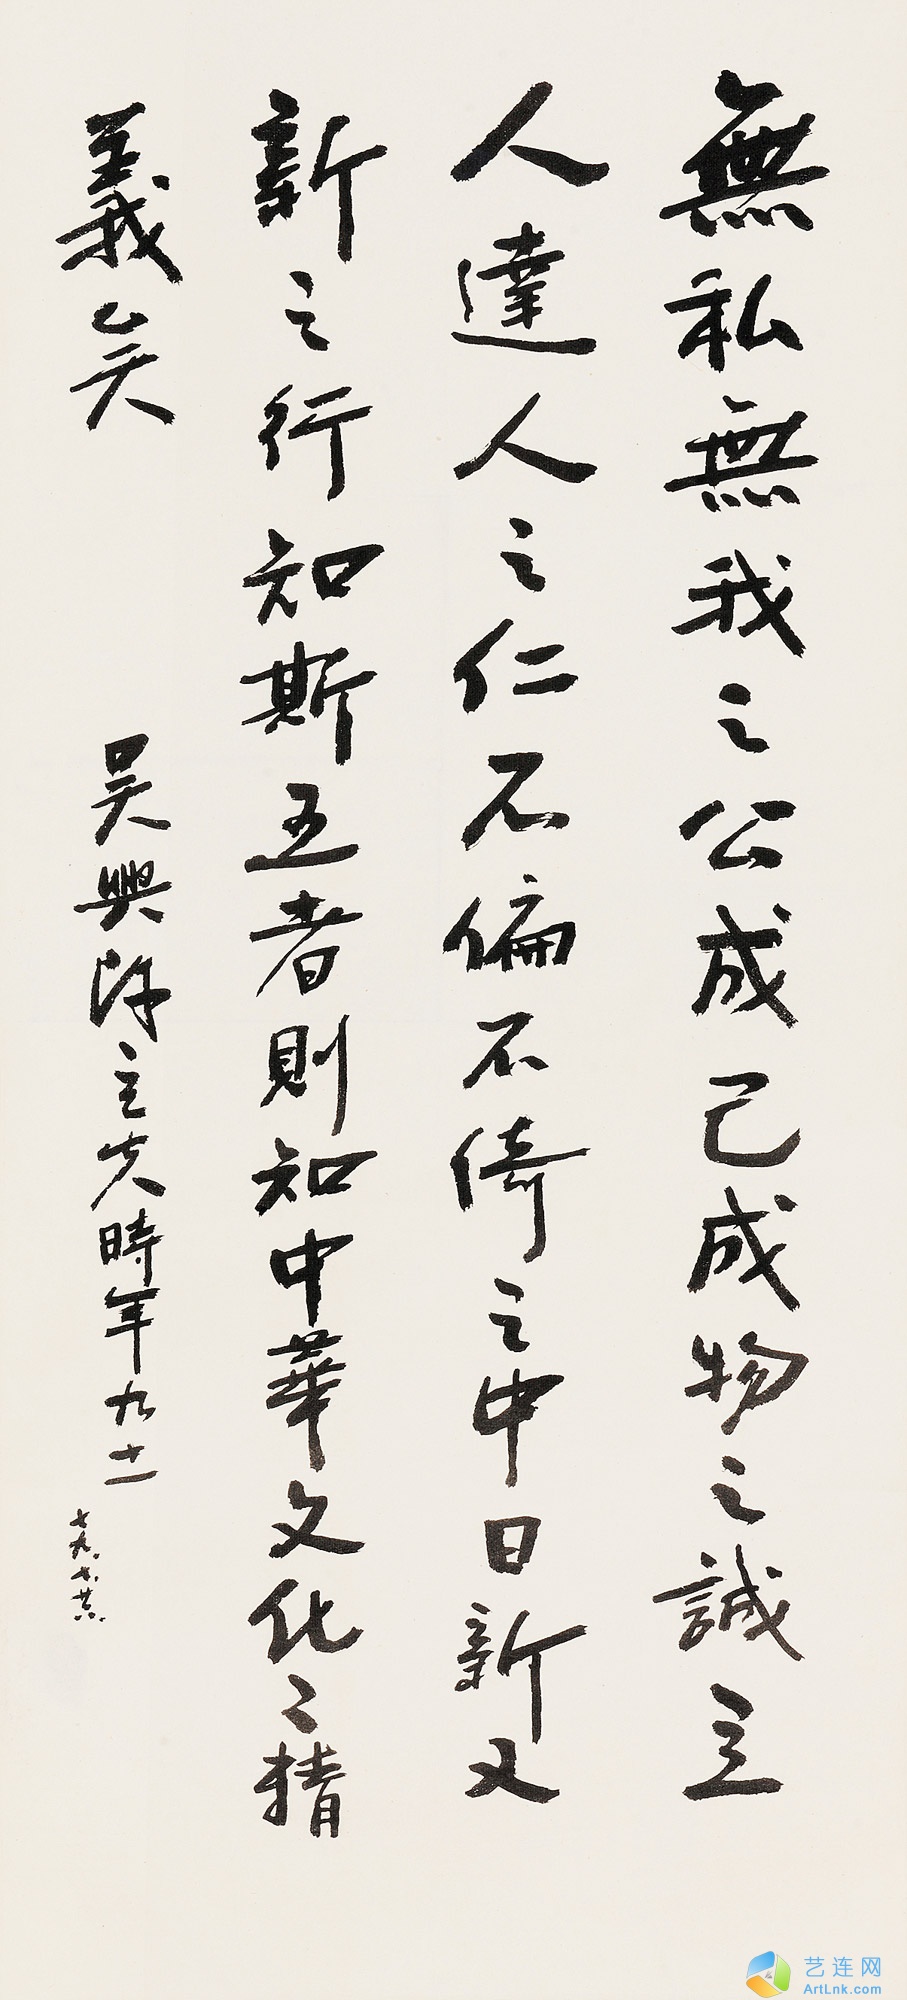 無私無我之公成己成物之誠立
人達人之仁不偏不倚之中日新又
新之行知斯五者則知中華文化之精
義矣
吳興陳立夫時年九十一
七九、七、廿六、
艺连网
ArtLnk.com